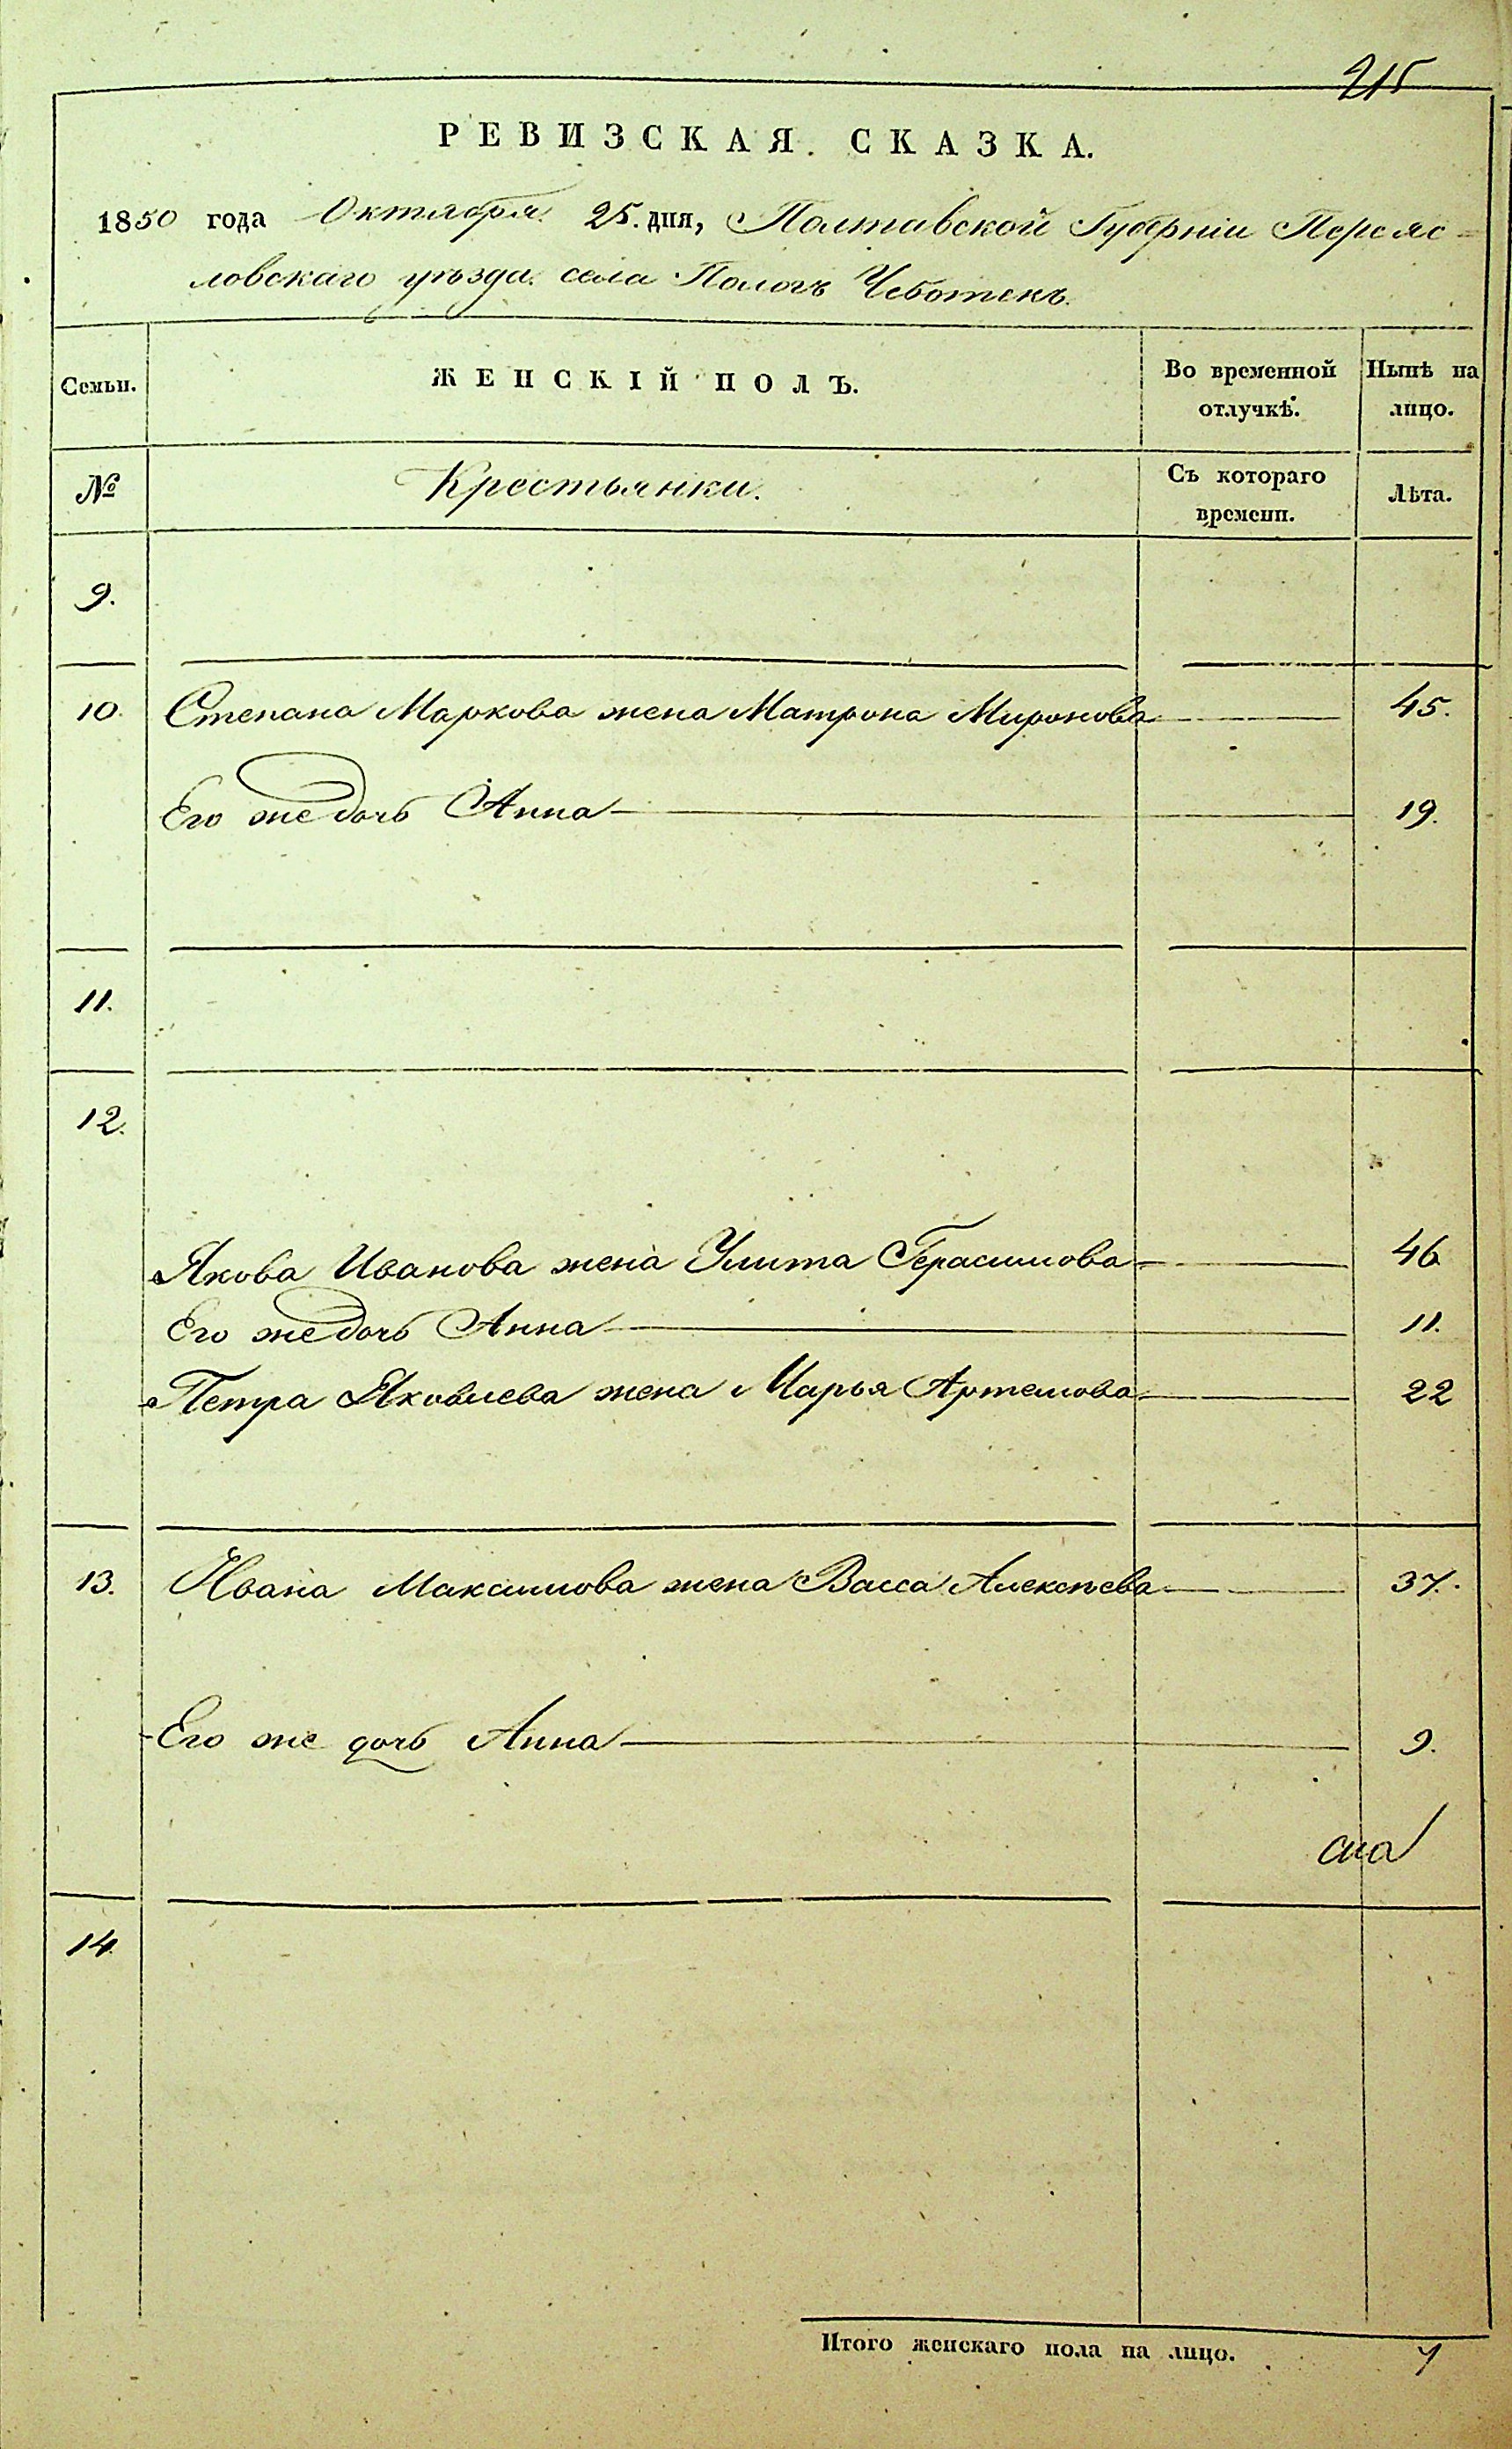 215
РЕВИЗСКАЯ СКАЗКА.
1850 года Октября 25. дня, Полтавской Губерніи Переяс-
ловскаго уѣзда села Пологъ Чеботекъ.
Семьи. ЖЕНСКІЙ ПОЛЪ. Во временной отлучкѣ. Нынѣ на лицо.
№ Крестьянки. Съ котораго времени. Лѣта.
9.
10. Степана Маркова жена Матрона Миронова 45.
Его же дочь Анна 19.
11.
12.
Якова Иванова жена Улита Герасимова 46
Его же дочь Анна 11.
Петра Яковлева жена Марья Артемова 22
13. Ивана Максимова жена Васса Алексѣева 37.
Его же дочь Анна 9.
14.
Итого женскаго пола на лицо. 7